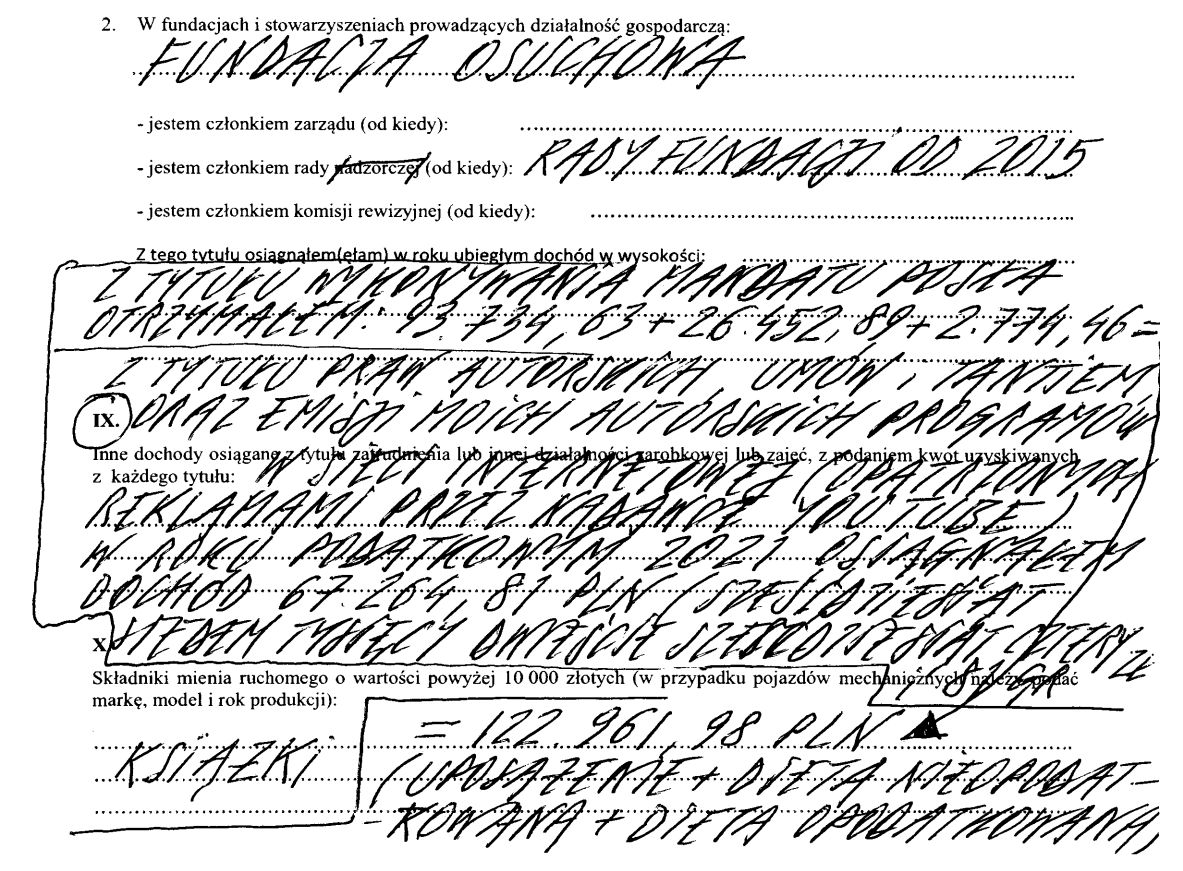 2. W fundacjach i stowarzyszeniach prowadzących działalność gospodarczą:
FUNDACJA OSUCHOWA
- jestem członkiem zarządu (od kiedy):
- jestem członkiem rady nadzorczej (od kiedy): RADY FUNDACJI OD 2015
- jestem członkiem komisji rewizyjnej (od kiedy):
Z tego tytułu osiągnąłem(ęłam) w roku ubiegłym dochód w wysokości:
Z TYTUŁU WYKONYWANIA MANDATU POSŁA
OTRZYMAŁEM: 93.734,63 + 26.452,89 + 2.774,46 =
Z TYTUŁU PRAW AUTORSKICH, UMÓW I TANTIEM
IX. ORAZ EMISJI MOICH AUTORSKICH PROGRAMÓW
Inne dochody osiągane z tytułu zatrudnienia lub innej działalności zarobkowej lub zajęć, z podaniem kwot uzyskiwanych
z każdego tytułu: W SIECI INTERNETOWEJ (OPATRIONYCH
REKLAMAMI PRZEZ NADAWCĘ YOUTUBE)
W ROKU PODATKOWYM 2021 OSIĄGNĄŁEM
DOCHÓD 67.264,81 PLN (SZEŚĆDZIESIĄT
X. SIEDEM TYSIĘCY DWIEŚCIE SZEŚĆDZIESIĄT CZTERY ZŁ
Składniki mienia ruchomego o wartości powyżej 10 000 złotych (w przypadku pojazdów mechanicznych należy podać
I 81 GR
markę, model i rok produkcji):
= 122.961,98 PLN
KSIĄŻKI (UPOSAŻENIE + DIETA NIEOPODAT-
-KOWANA + DIETA OPODATKOWANA)